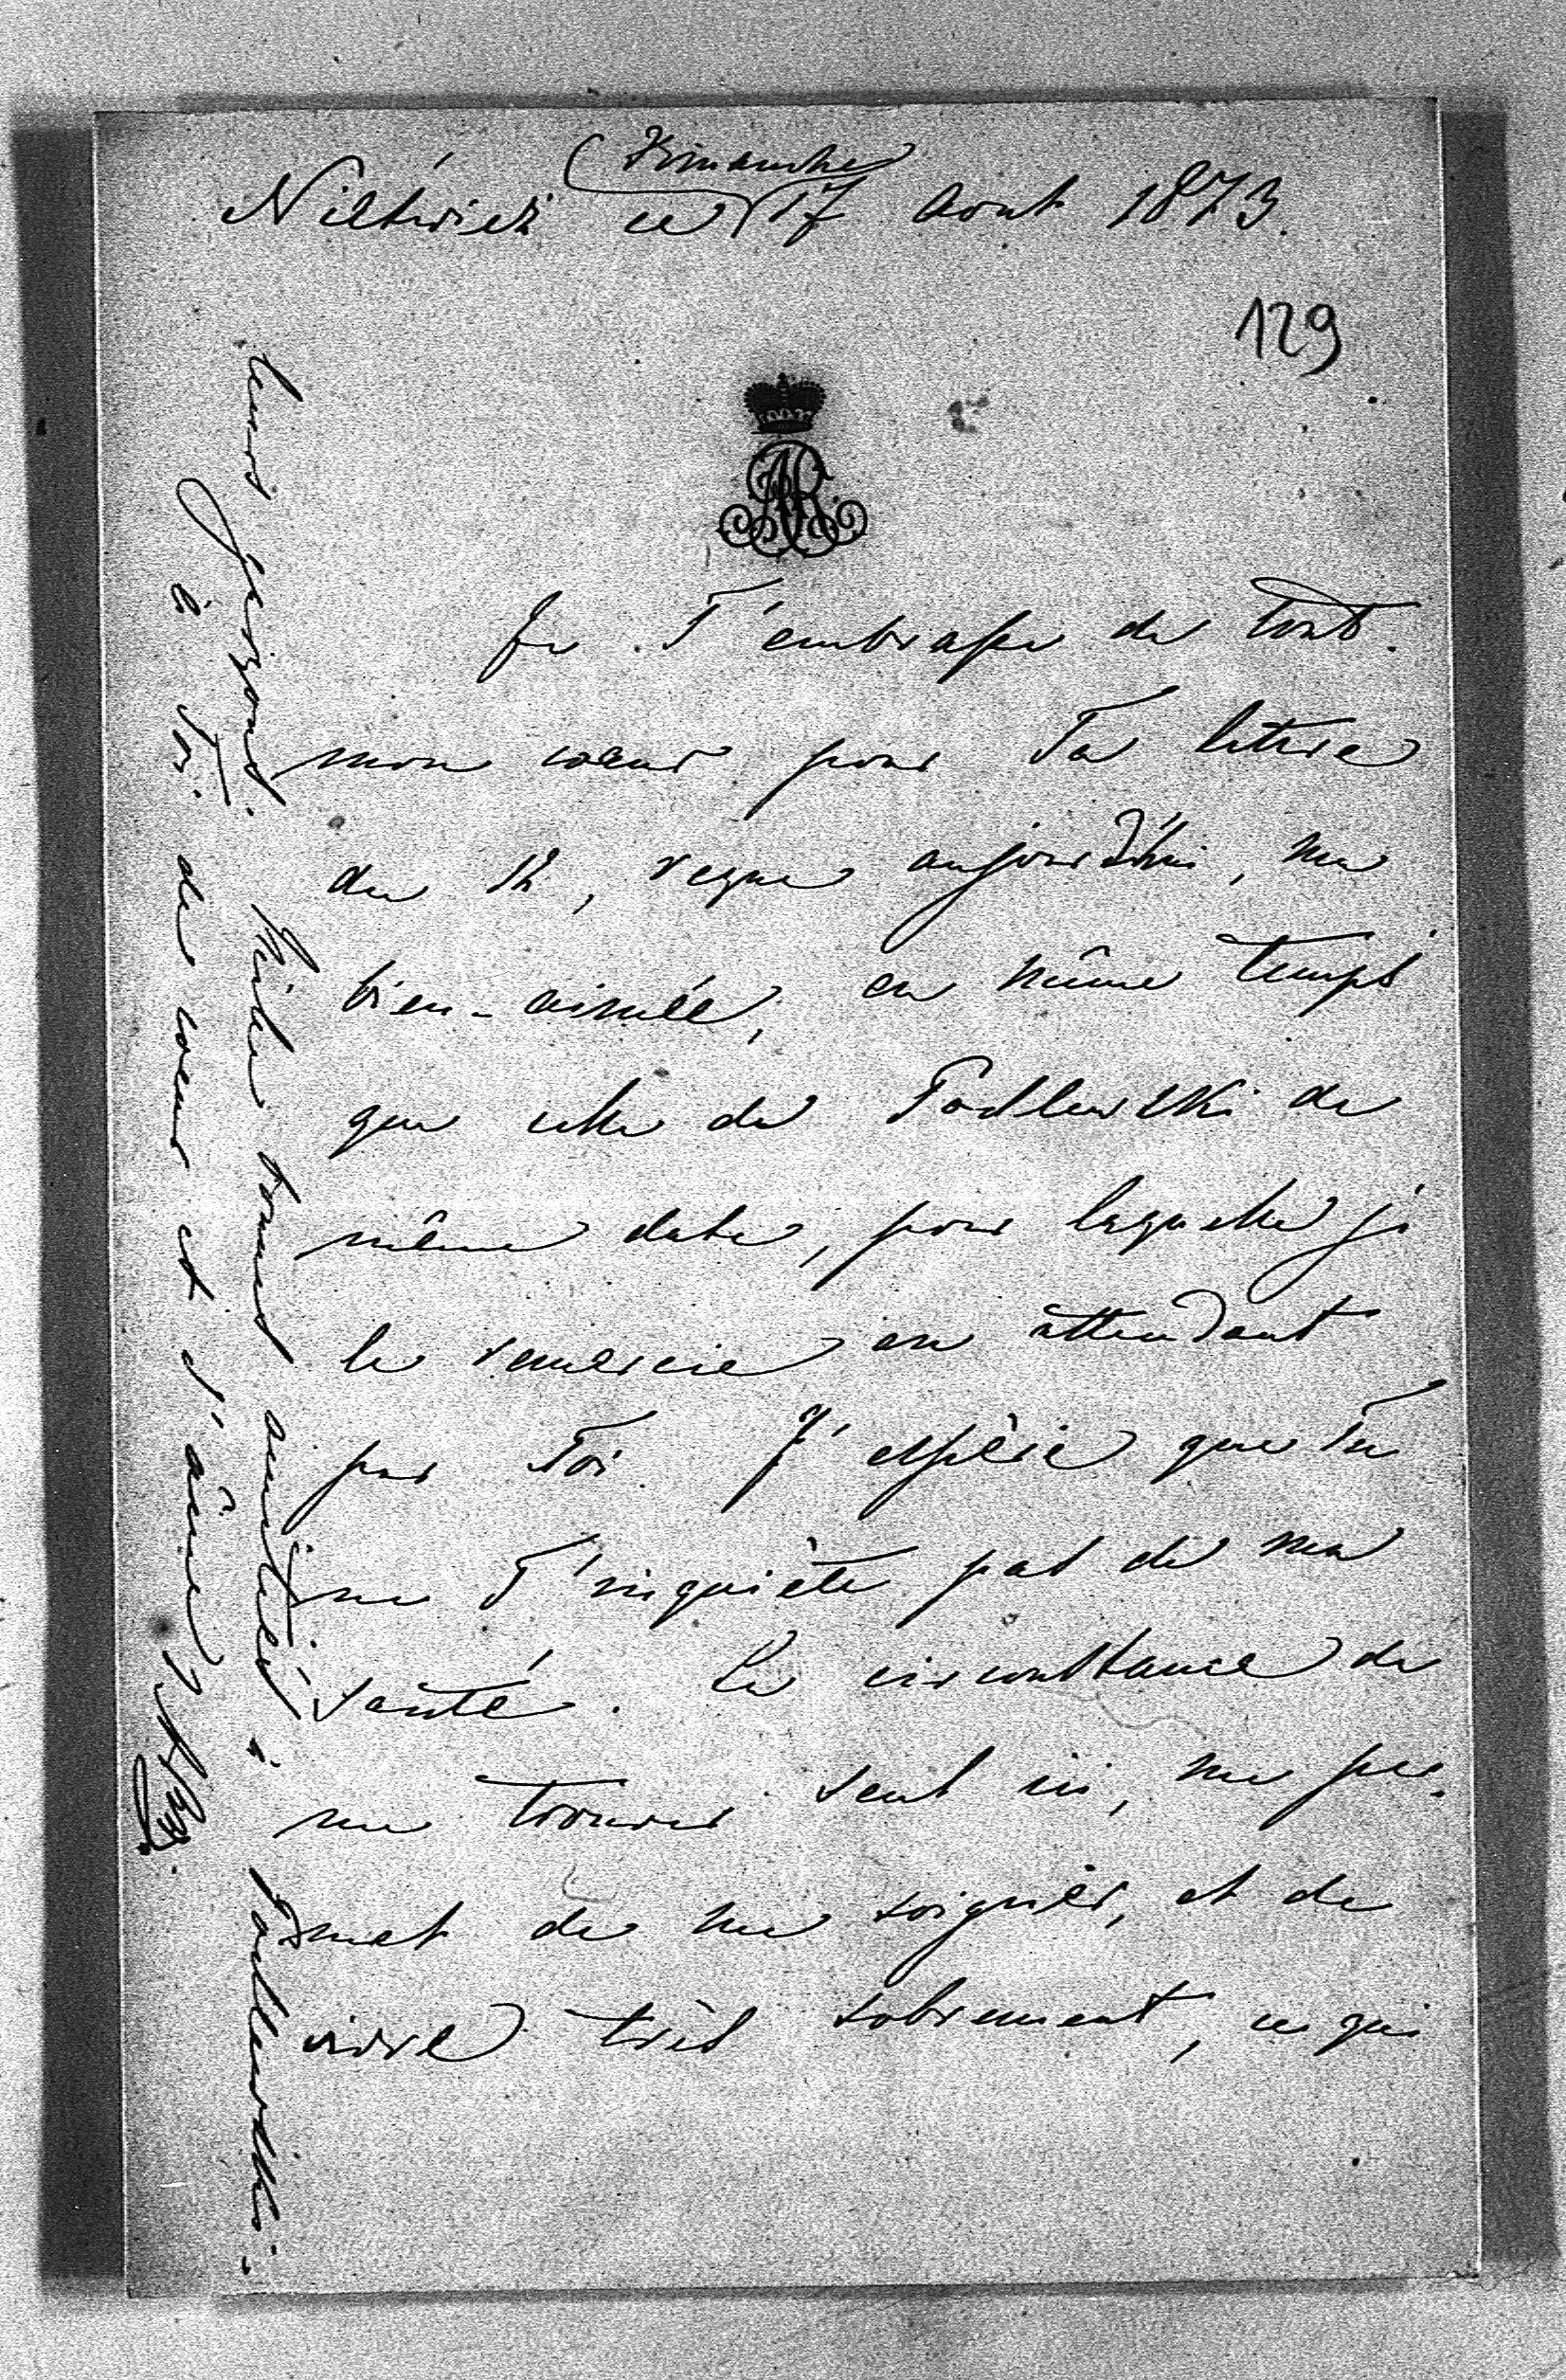 (Dimanche)
Nieświeź ce 17 Aout 1873.
129
AR
Je T'embrasse de tout
mon cœur pour Ta lettre
du 12, reçue aujourd'hui, ma
bien-aimée, en même temps
que celle de Podlewski de
même date, pour laquelle je
le remercie en attendant
par Toi. J'espère que Tu
ne T'inquiète pas de ma
santé. La circonstance de
me trouver seul ici, me per-
met de me soigner, et de
vivre très sobrement, ce qui
leurs garçons. Mille bonnes amitiés à Podlewski.
à Toi de cœur et d'âme